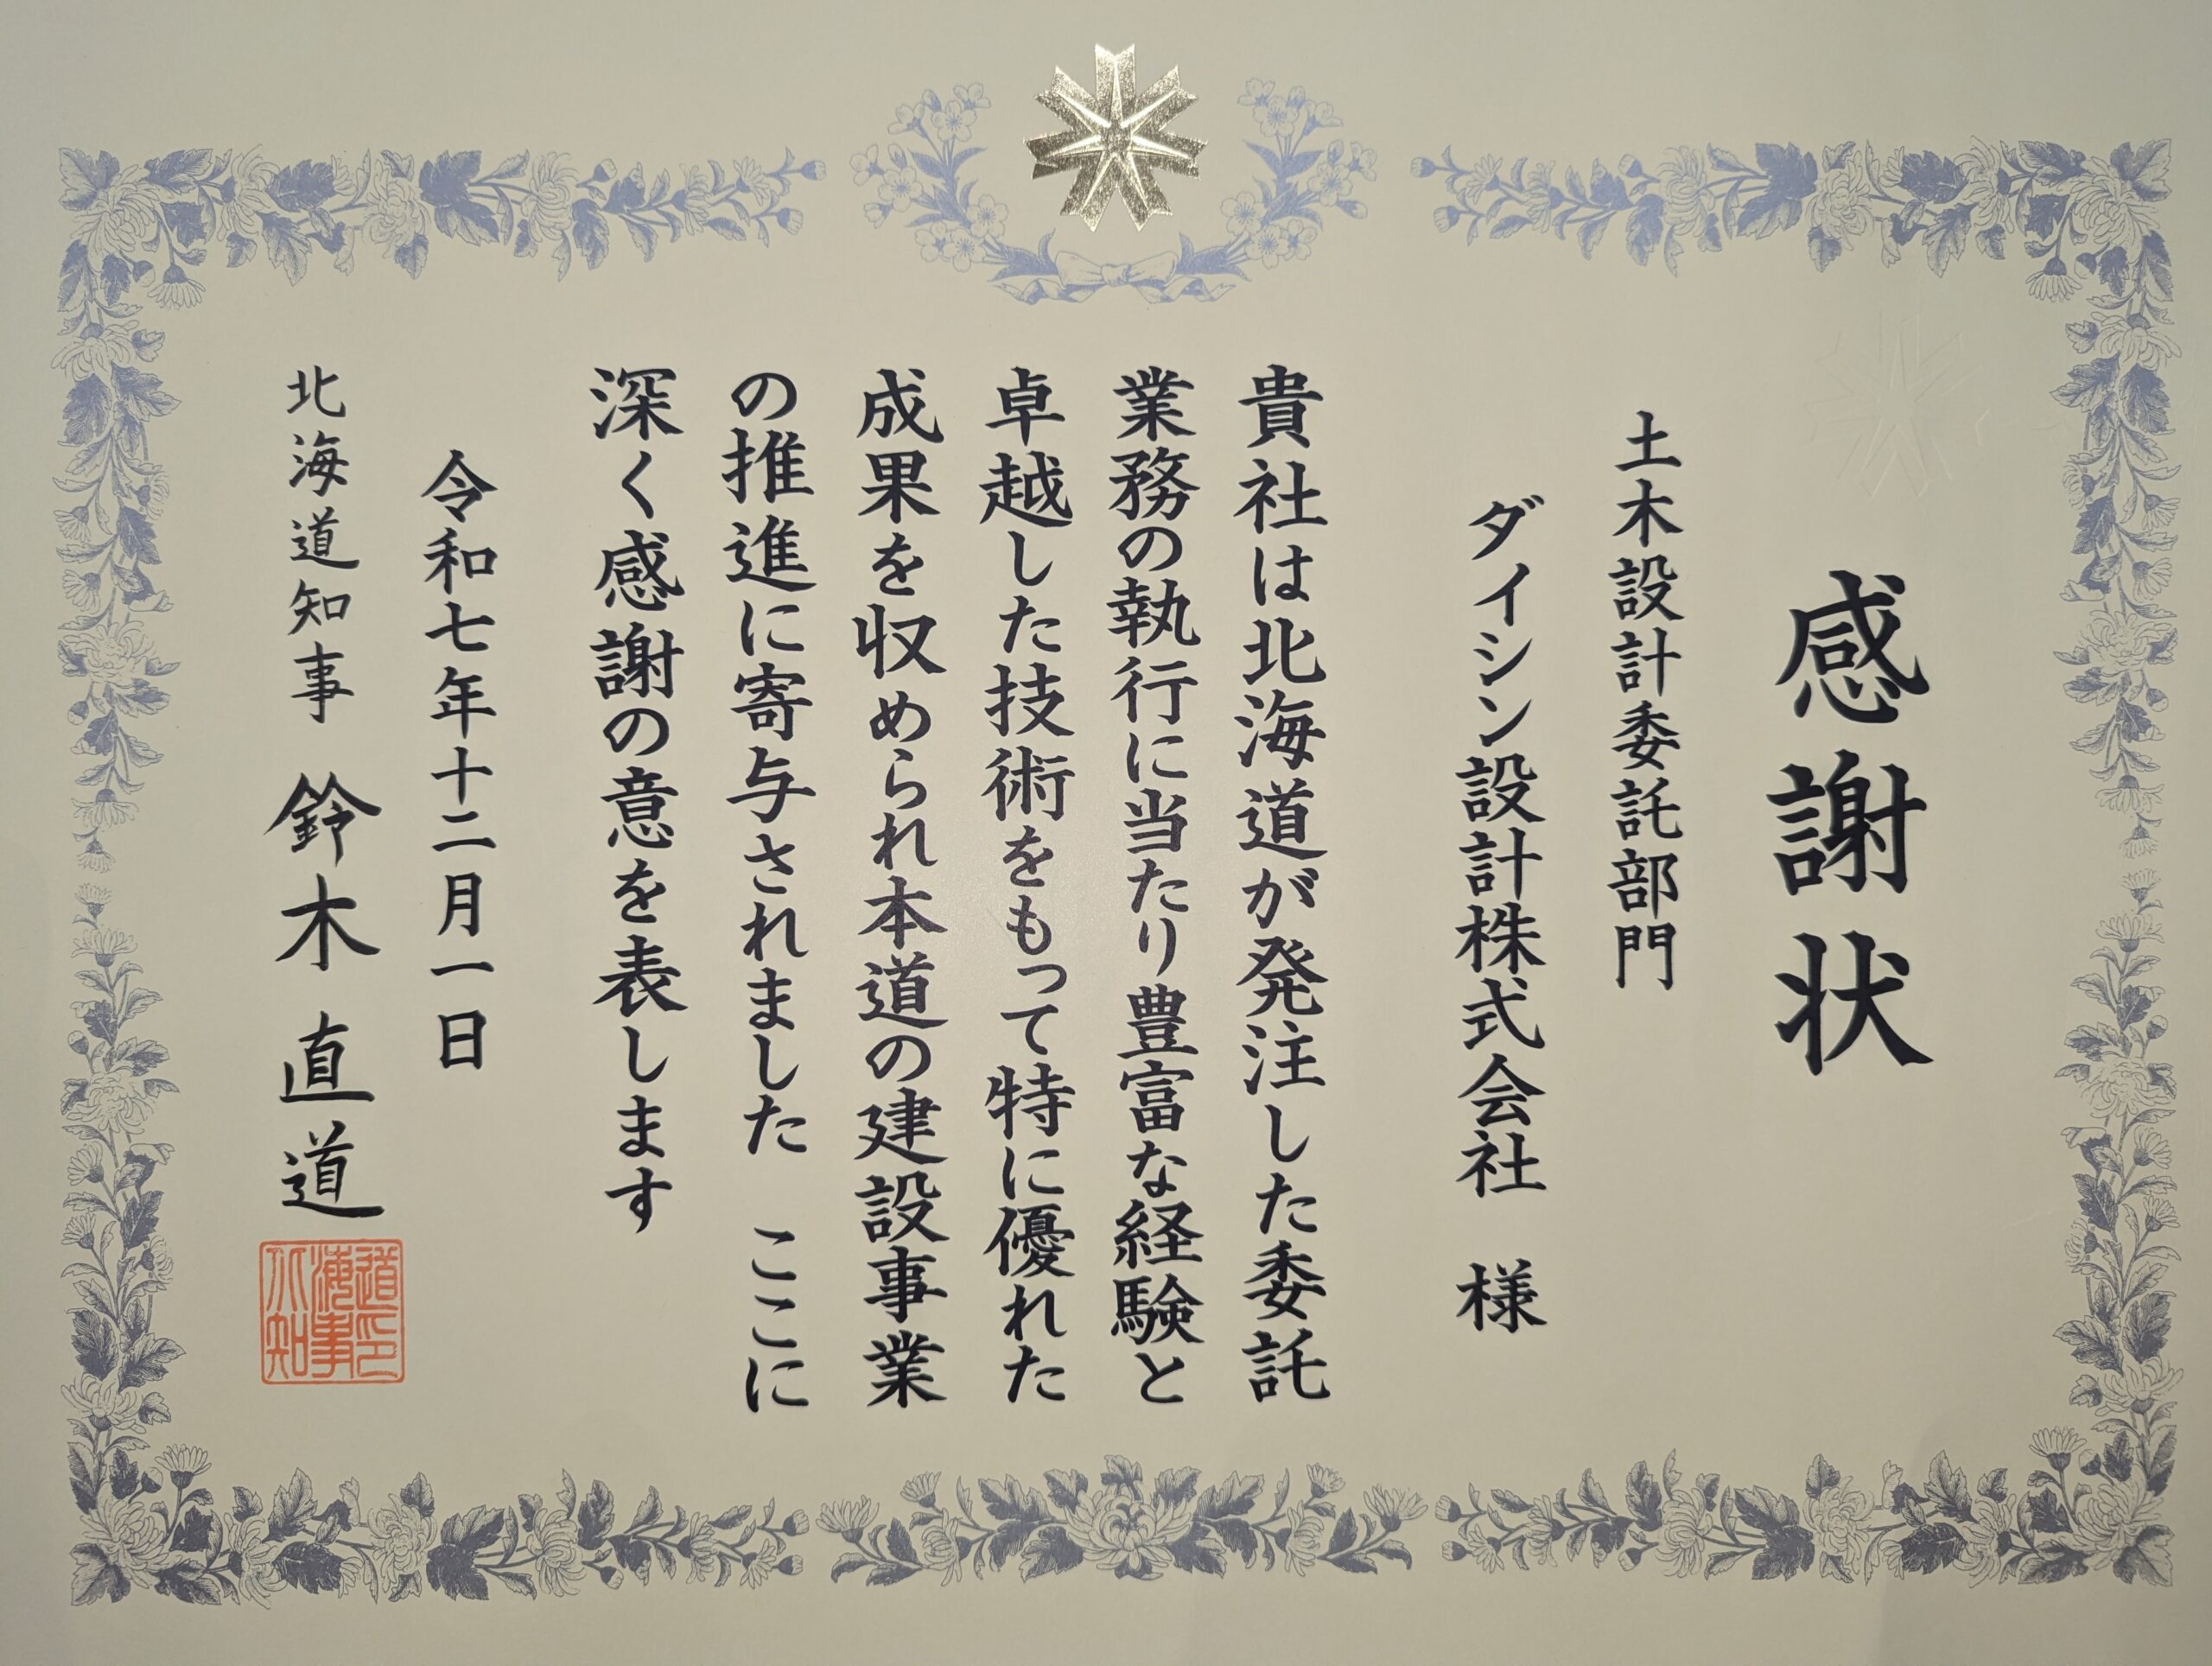 感謝状
土木設計委託部門
ダイシン設計株式会社 様
貴社は北海道が発注した委託
業務の執行に当たり豊富な経験と
卓越した技術をもって特に優れた
成果を収められ本道の建設事業
の推進に寄与されました ここに
深く感謝の意を表します
令和七年十二月一日
北海道知事 鈴木直道
道印
海事
北知